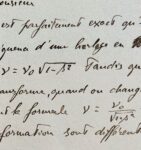 onsieur
est parfaitement exact qu
quence d'une horloge en
ν = ν₀ √1-β². Tandis qu
ansforme, quand on chang
nt la formule ν = ν₀/√1-β²
formation sont différent